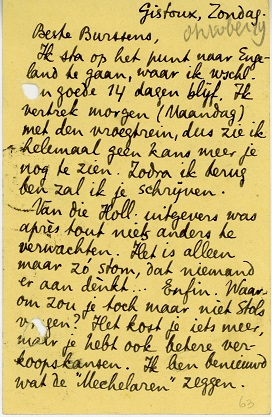 Gistoux, Zondag.
Beste Burssens,
Ik sta op het punt naar Enge-
land te gaan, waar ik wschl.
'n goede 14 dagen blijf. Ik
vertrek morgen (Maandag)
met den vroegtrein, dus zie ik
helemaal geen kans meer je
nog te zien. Zodra ik terug
ben zal ik je schrijven.
Van die Holl. uitgevers was
après tout niets anders te
verwachten. Het is alleen
maar zó stom, dat niemand
er aan denkt... Enfin. Waar-
om zou je toch maar niet Stols
vragen? Het kost je iets meer,
maar je hebt ook betere ver-
koopskansen. Ik ben benieuwd
wat de "Mechelaren" zeggen.
63